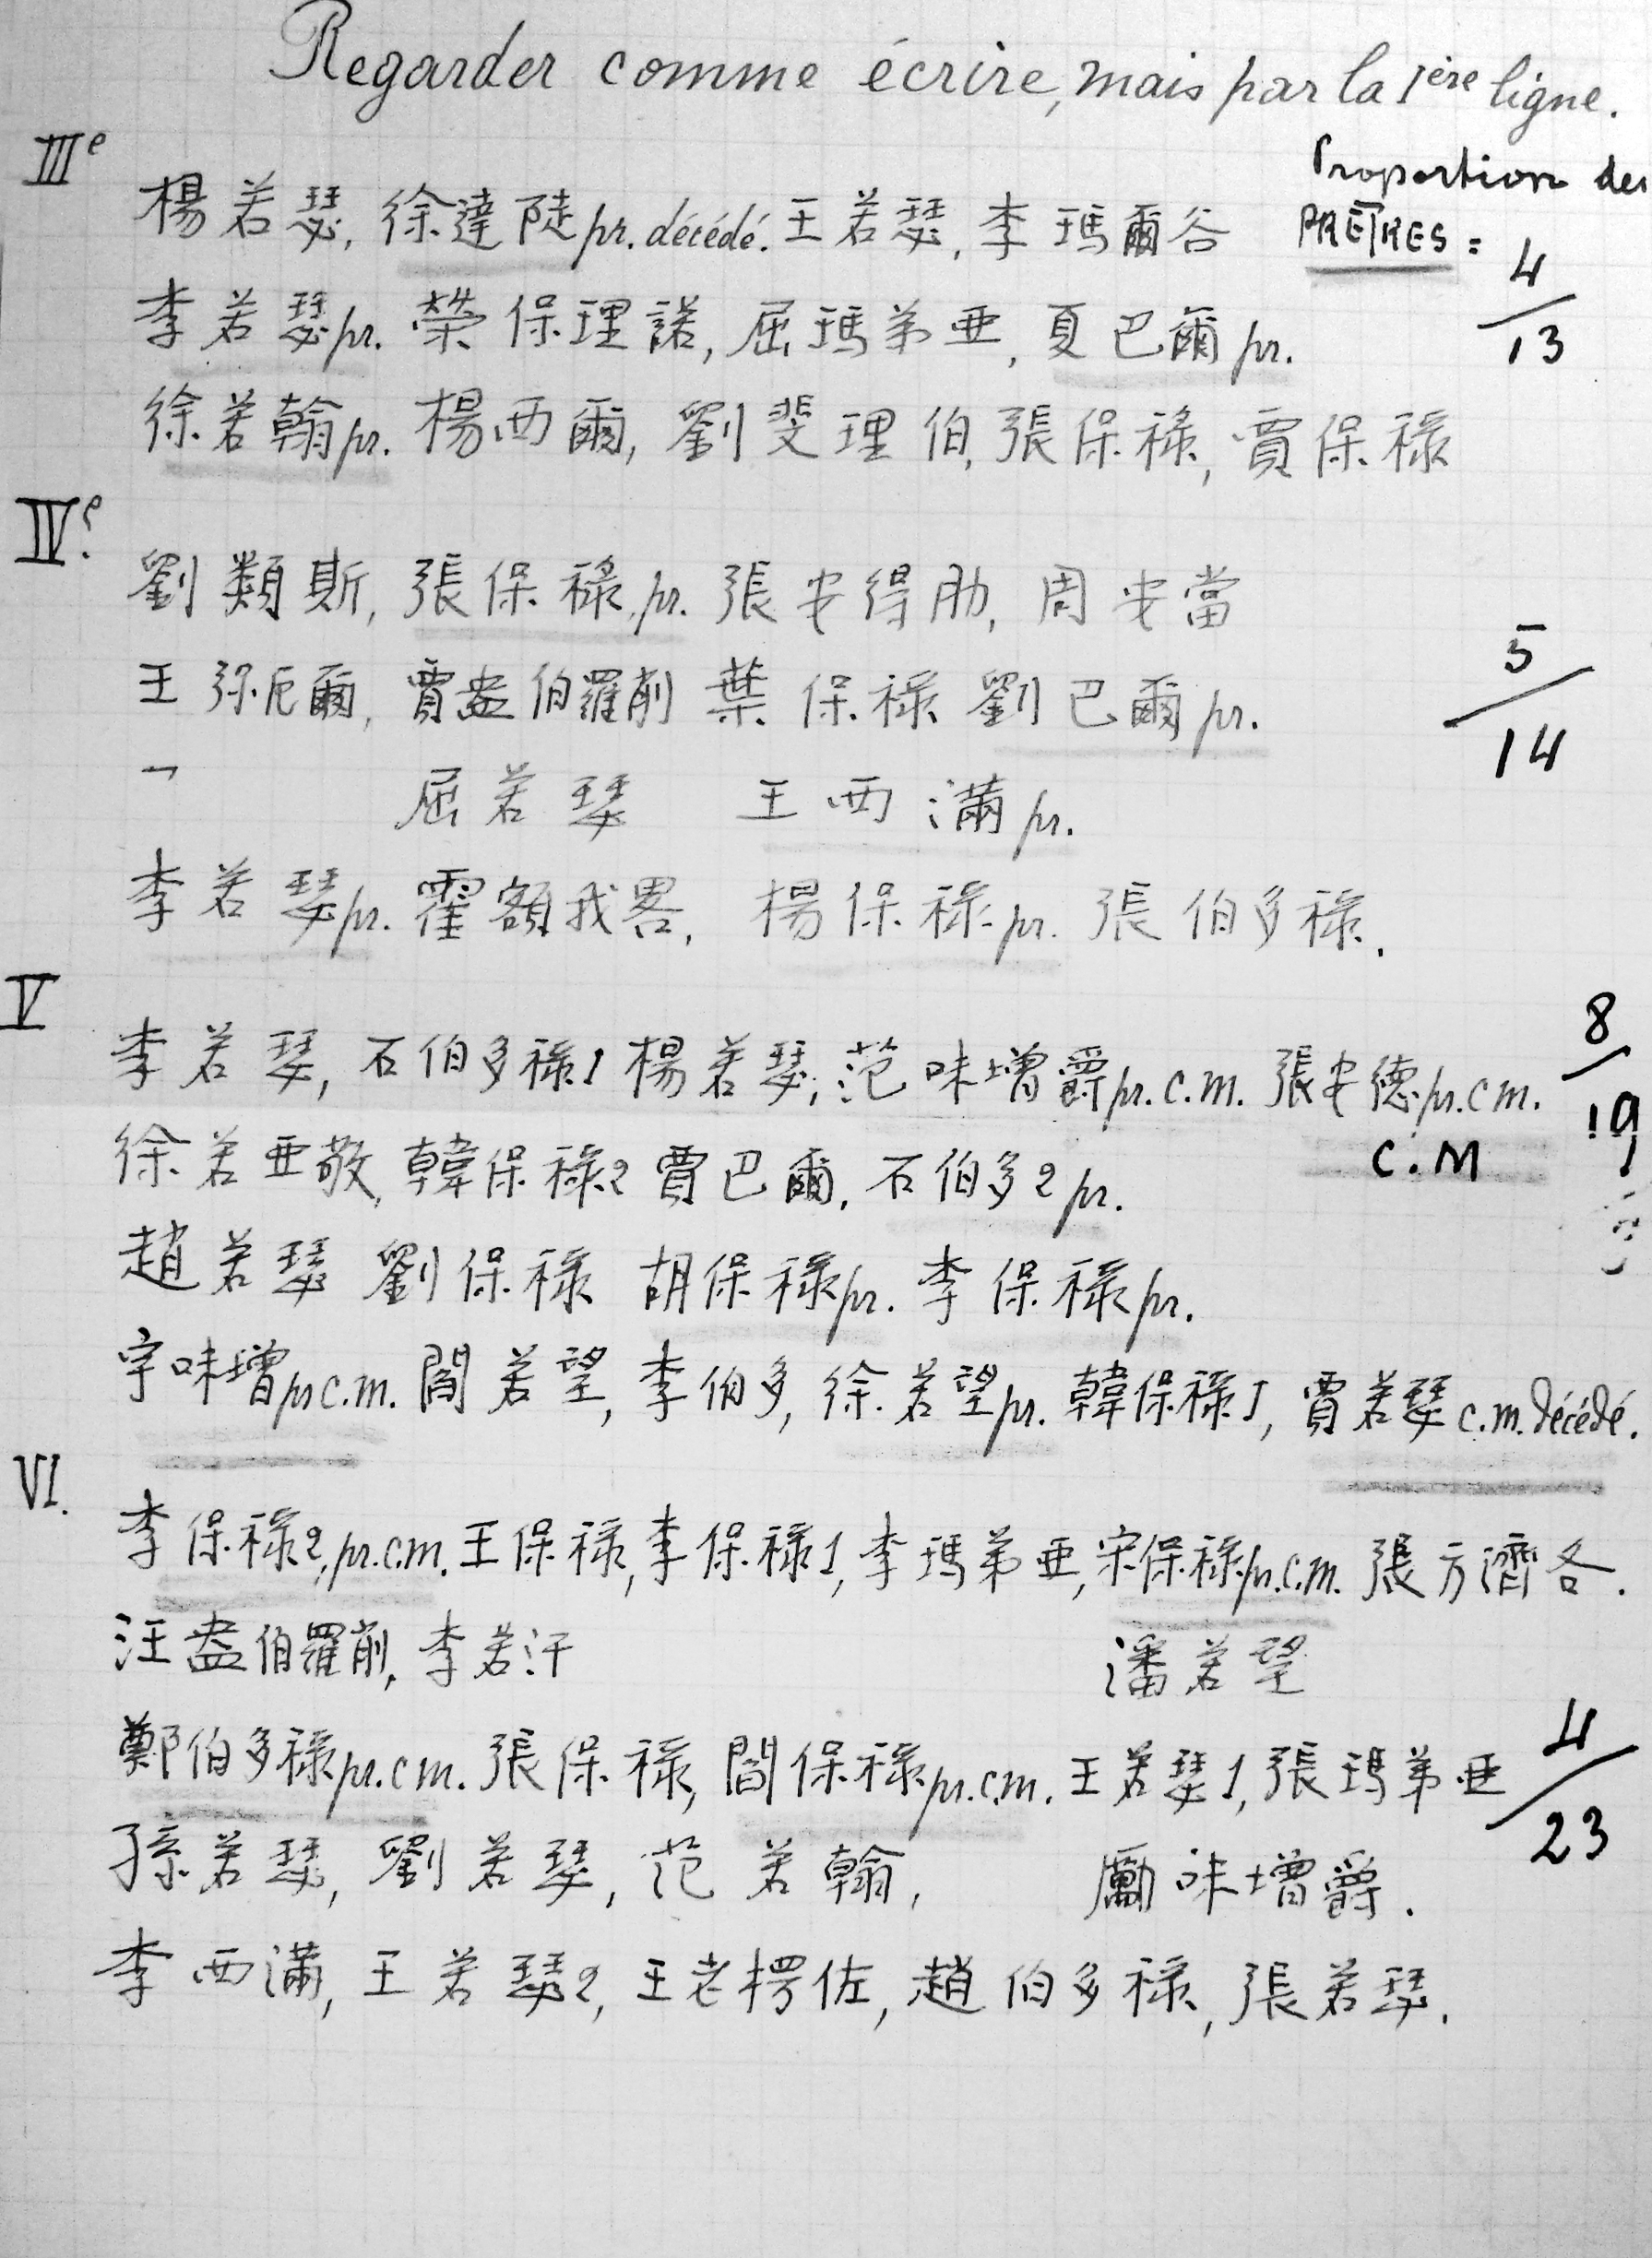 Regarder comme écrire, mais par la 1ère ligne.
IIIe
Proportion des
PRÊTRES = 4/13
楊若瑟, 徐達陡 pr. décédé. 王若瑟, 李瑪爾谷
李若瑟 pr. 榮保理諾, 屈瑪弟亜, 夏巴爾 pr.
徐若翰 pr. 楊西爾, 劉斐理伯, 張保祿, 賈保祿
IVe.
劉類斯, 張保祿 pr. 張安得肋, 周安當
5/14
王弥厄爾, 賈盎伯羅削 葉保祿 劉巴爾 pr.
屈若瑟 王西滿 pr.
李若瑟 pr. 霍額我畧, 楊保祿 pr. 張伯多祿.
V
李若瑟, 石伯多祿1 楊若瑟, 范味增爵 pr. c.m. 張安德 pr. c m.
8/19
C.M
徐若亜敬, 韓保祿2 賈巴爾, 石伯多2 pr.
趙若瑟 劉保祿 胡保祿 pr. 李保祿 pr.
字味增 pr c.m. 閻若望, 李伯多, 徐若望 pr. 韓保祿1, 賈若瑟 c.m. décédé.
VI.
李保祿2, pr.c.m. 王保祿, 李保祿1, 李瑪弟亜, 宋保祿 pr.c.m. 張方濟各.
汪盎伯羅削, 李若汗 潘若望
鄭伯多祿 pr.c m. 張保祿, 閻保祿 pr.c.m. 王若瑟1, 張瑪弟亜
4/23
孫若瑟, 劉若瑟, 范若翰, 勵味增爵.
李西滿, 王若瑟2, 王老楞佐, 趙伯多祿, 張若瑟.